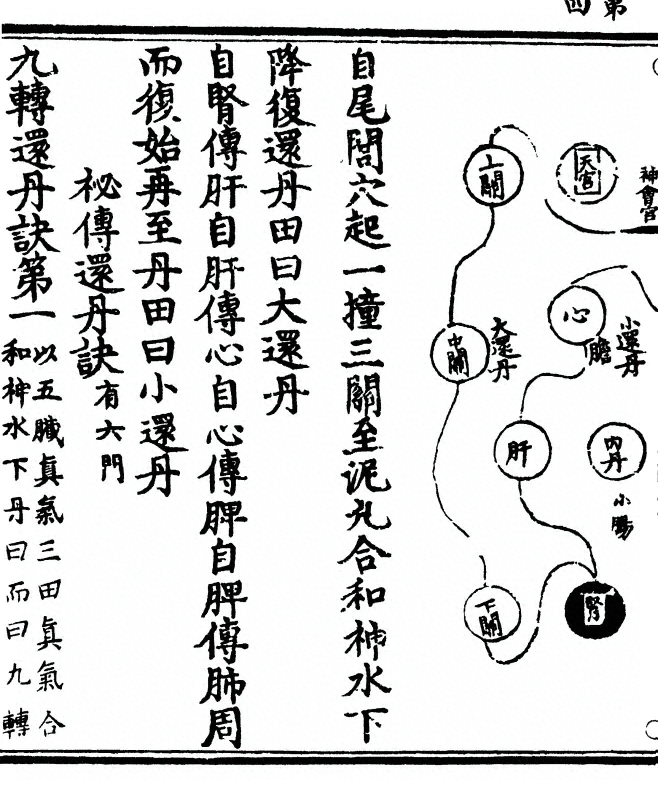 第
四
神會宮
天宮
上關
心
小還丹
膽
大還丹
中關
內丹
小腸
肝
腎
下關
自尾閭穴起一撞三關至泥丸合和神水下
降復還丹田曰大還丹
自腎傳肝自肝傳心自心傳脾自脾傳肺周
而復始再至丹田曰小還丹
秘傳還丹訣有六門
九轉還丹訣第一以五臟真氣三田真氣合
和神水下丹田而曰九轉